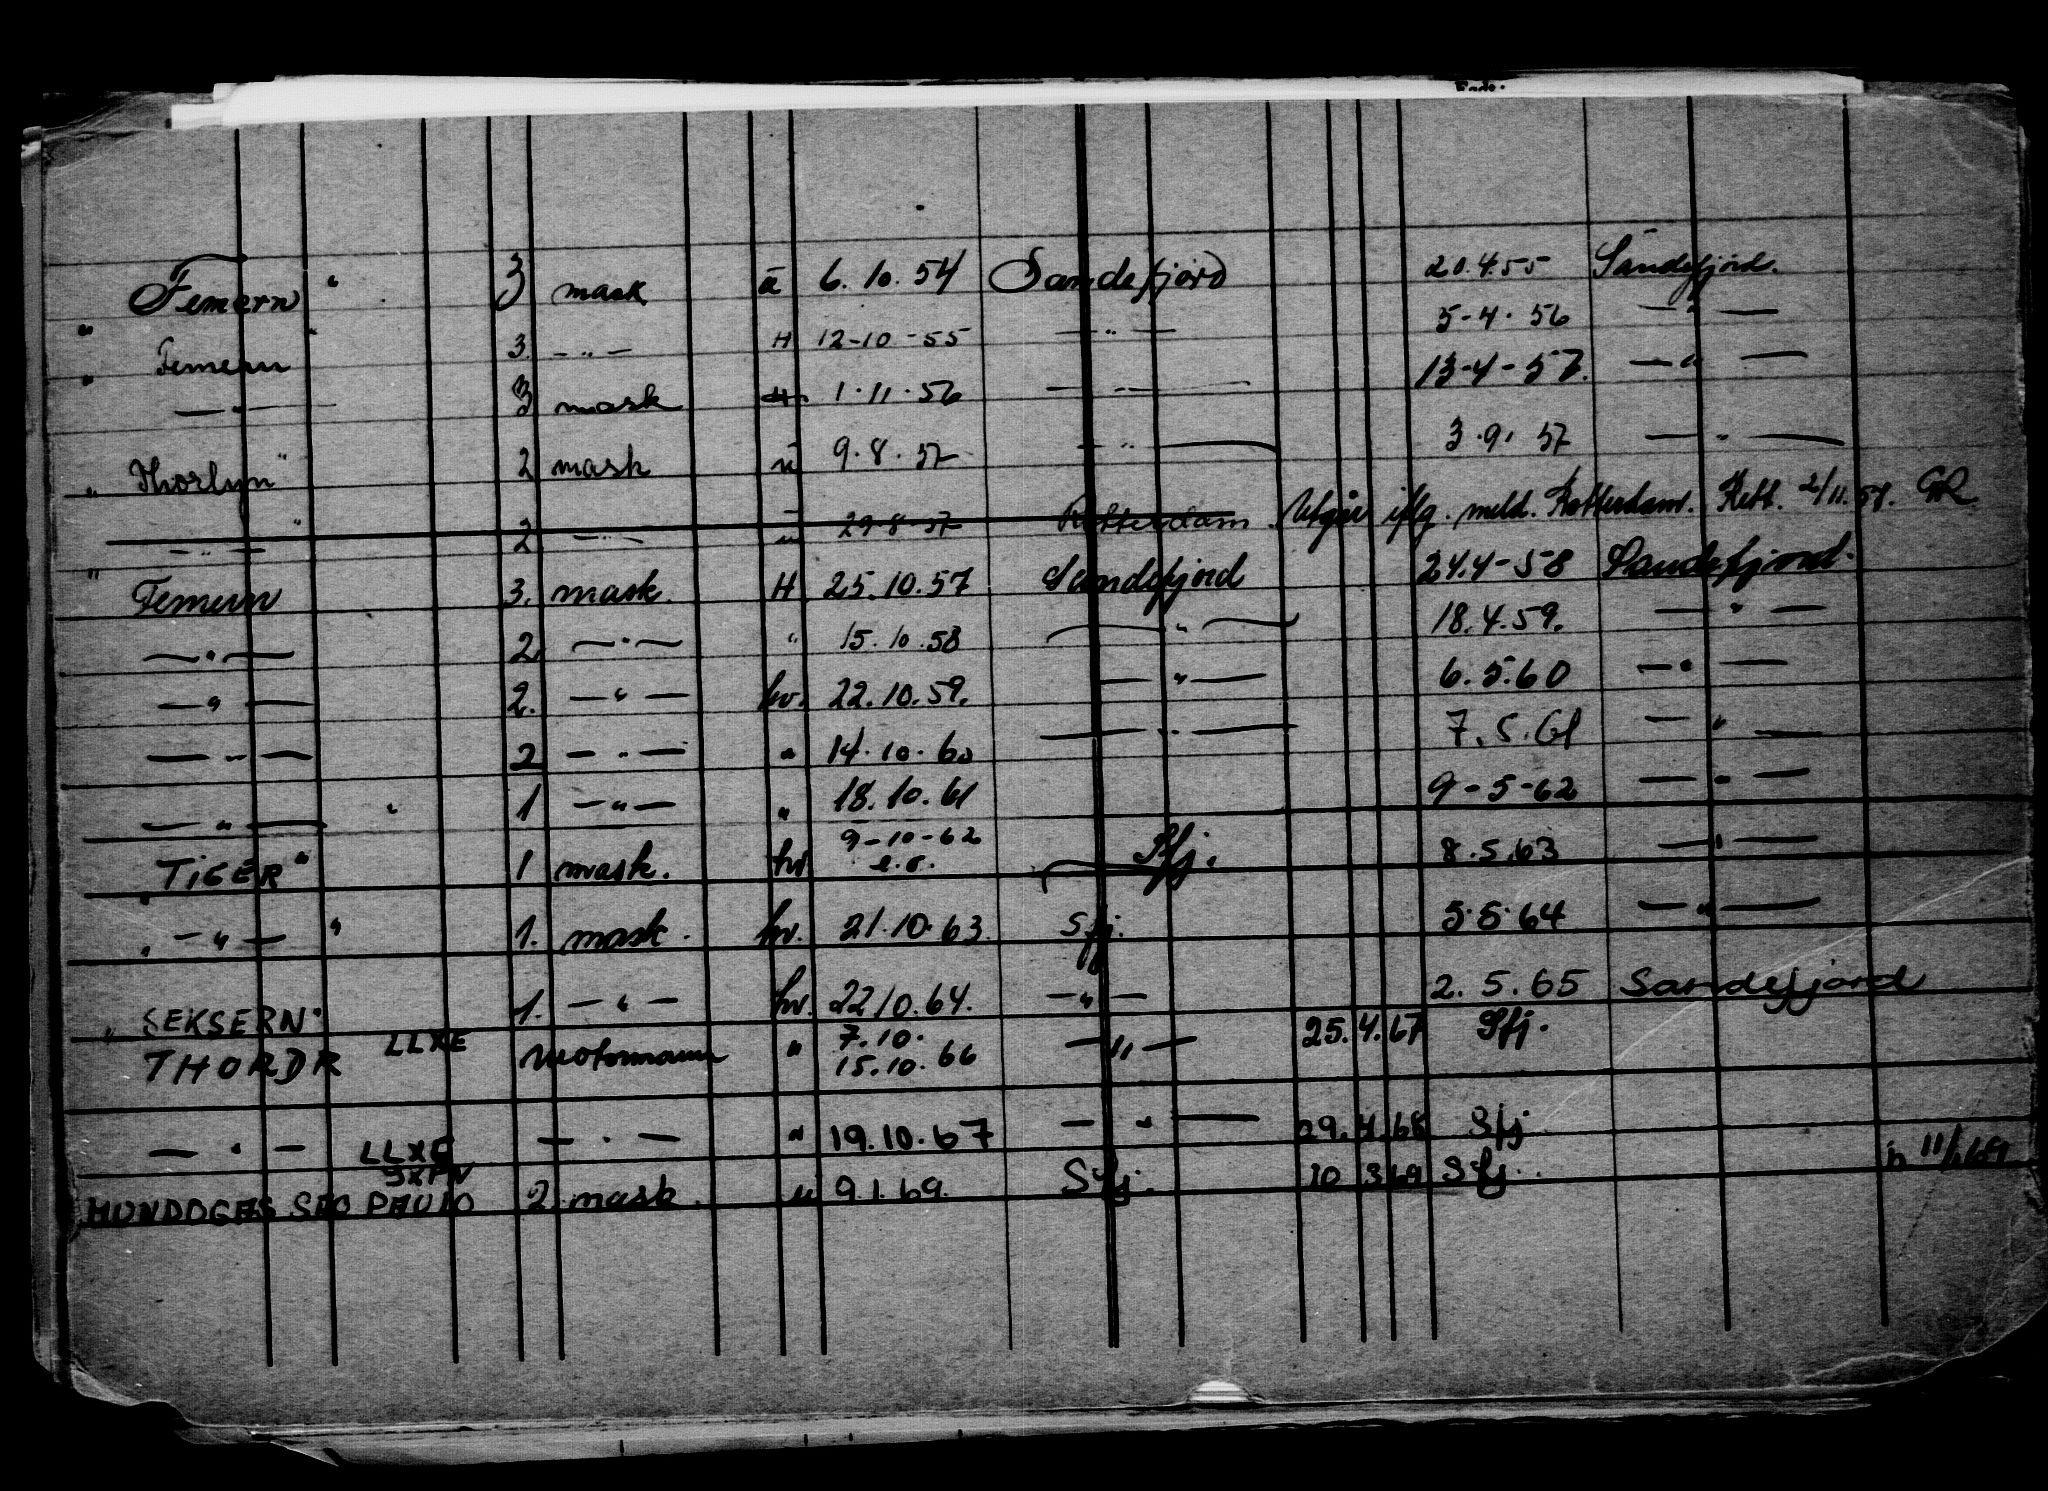 Femern " 3 mask ū 6.10.54 Sandefjord 20.4.55 Sandefjord.
" Femern " 3 — " — H 12-10-55 — " — 5-4.56 — " —
" — " — 3 mask H 1.11.56 — " — 13-4-57. — " —
" Thorlyn " 2 mask u 9.8.57 — " — 3.9.57 — " —
— " — " 2 — " — u 29-8-57 Rotterdam. Utgår iflg. meld. Rotterdam. Rett. 2/11.57. GR
" Femern 3. mask. H 25.10.57 Sandefjord 24.4-58 Sandefjord.
— " — 2 — " — " 15.10.58 — " — 18.4.59. — " —
— " — 2. — " — hv. 22.10.59. — " — 6.5.60 — " —
— " — 2 — " — " 14.10.60 — " — 7.5.61 — " —
— " — " 1 — " — " 18.10.61 9-5-62 — " —
"TiGER" 1 mask. hv 9-10-62 Sfj. 8.5.63 — " —
e.o.
" — " — " 1. mask. hv. 21.10.63. Sfj. 5.5.64 — " —
" SEKSERN" 1. — " — hv. 22/10.64. — " — 2.5.65 Sandefjord
THORDR LLXE motormann " 7.10. — " — 25.4.67 Sfj.
15.10.66
— " — LLXE — " — " 19.10.67 — " — 29.4.68 Sfj
SXFN
MUNDOGAS SAO PAULO 2 mask. u 9.1.69. Sfj. 10 3 69 Sfj.